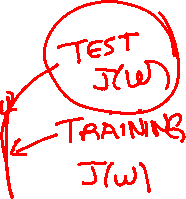 TEST
J(W)
TRAINING
J(W)